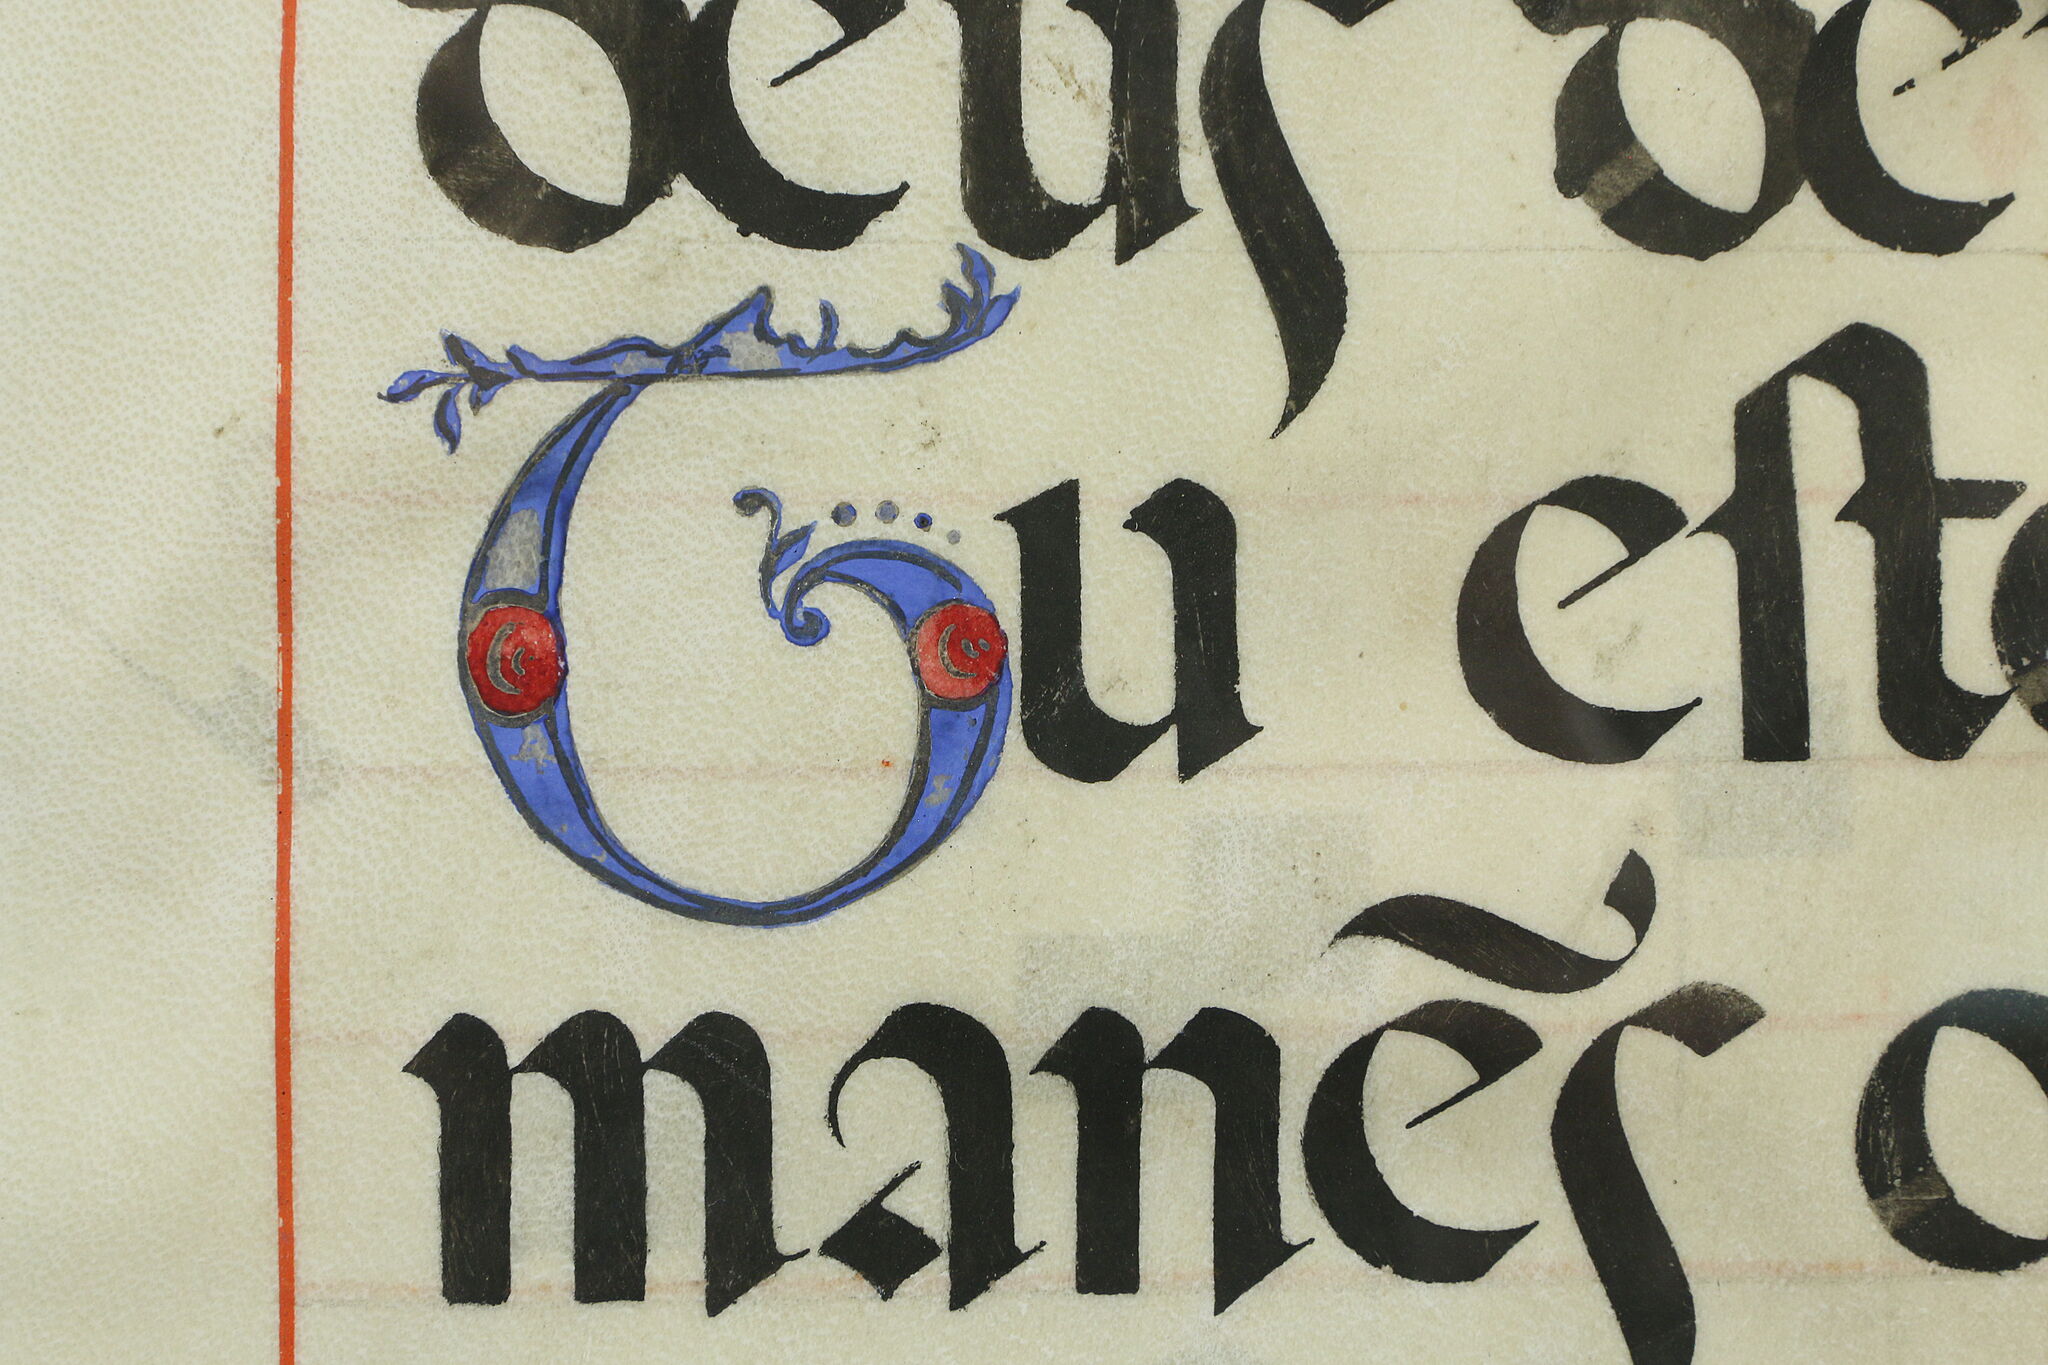 deuſ de
Tu eſto
maneſ̃ o